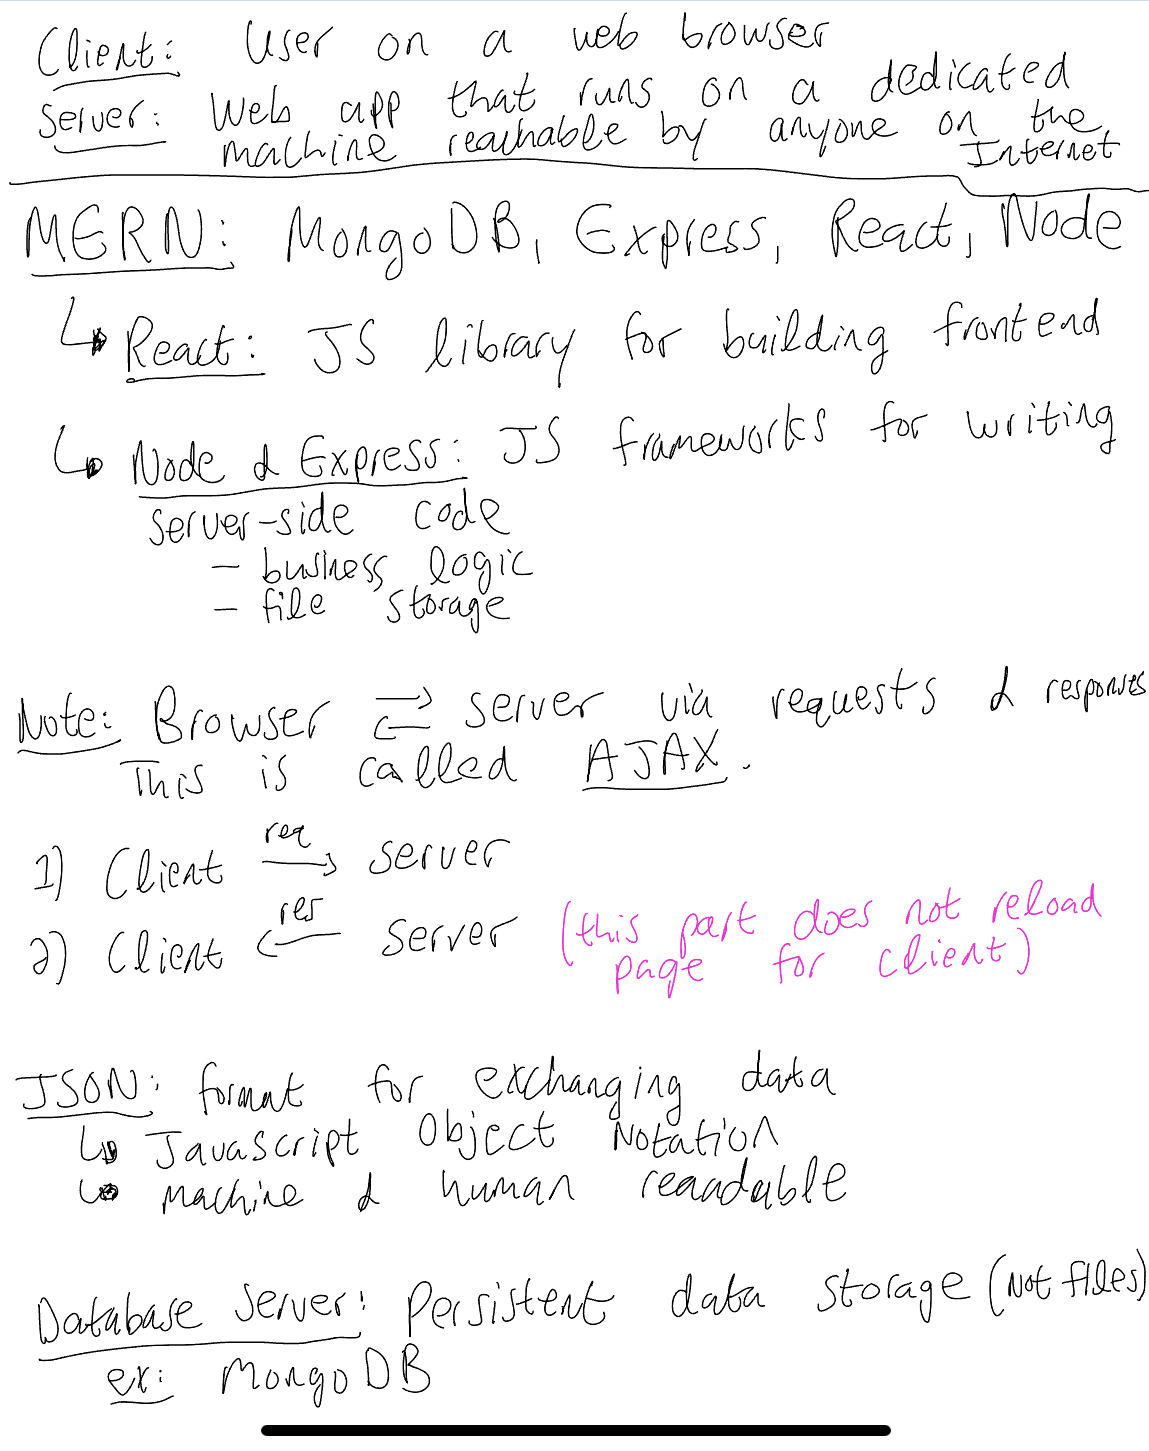 Client: User on a web browser
Server: Web app that runs on a dedicated
machine reachable by anyone on the
Internet
MERN: MongoDB, Express, React, Node
↳ React: JS library for building frontend
↳ Node & Express: JS frameworks for writing
server-side code
- business logic
- file storage
Note: Browser ⇄ server via requests & responses
This is called AJAX.
req
1) Client → server
res
2) Client ← server (this part does not reload
page for client)
JSON: format for exchanging data
↳ JavaScript Object Notation
↳ machine & human reaadable
Database Server: Persistent data storage (Not files)
ex: MongoDB